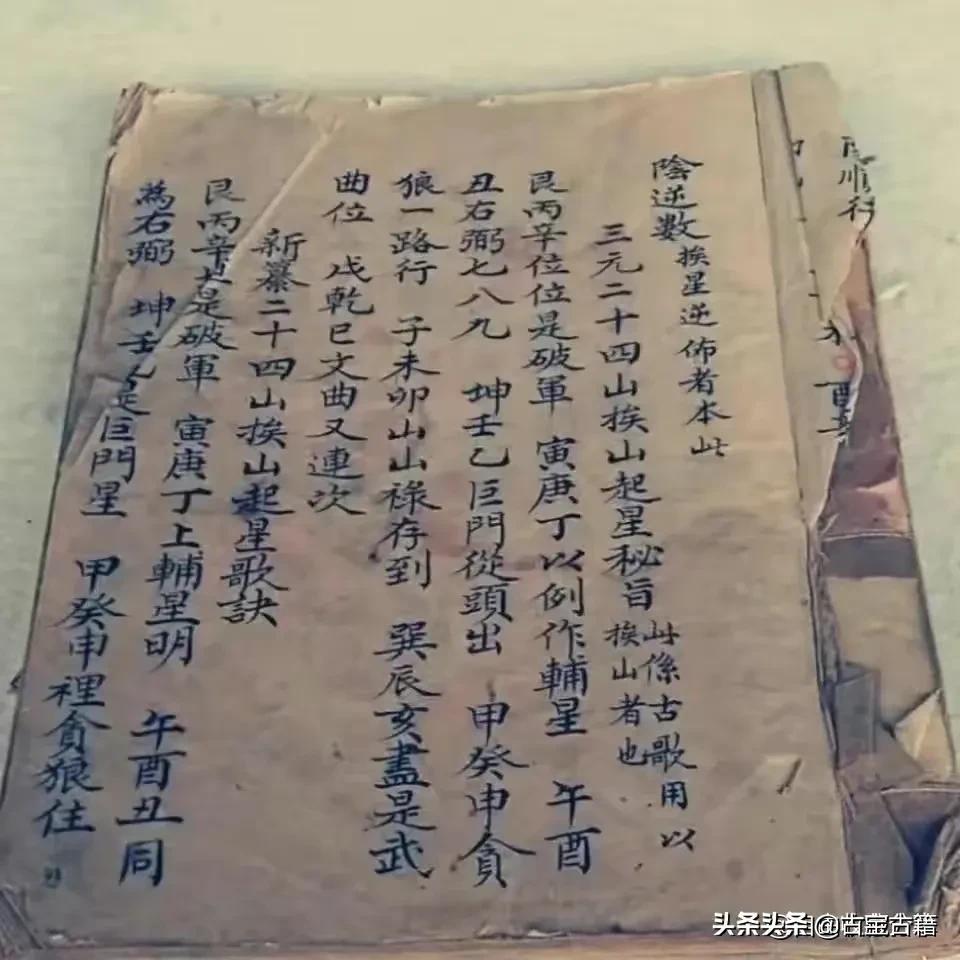 陰逆數 挨星逆佈者本此
三元二十四山挨山起星秘旨 此係古歌用以挨山者也
艮丙辛位位是破軍 寅庚丁以例作輔星 午酉
丑右弼七八九 坤壬乙巨門從頭出 申癸申貪
狼一路行 子未卯山山祿存到 巽辰亥盡是武
曲位 戌乾巳文曲又連次
新纂二十四山挨山起星歌訣
艮丙辛是破軍 寅庚丁上輔星明 午酉丑同
為右弼 坤壬乙是巨門星 甲癸申裡貪狼住
順行
头条@古宝古籍